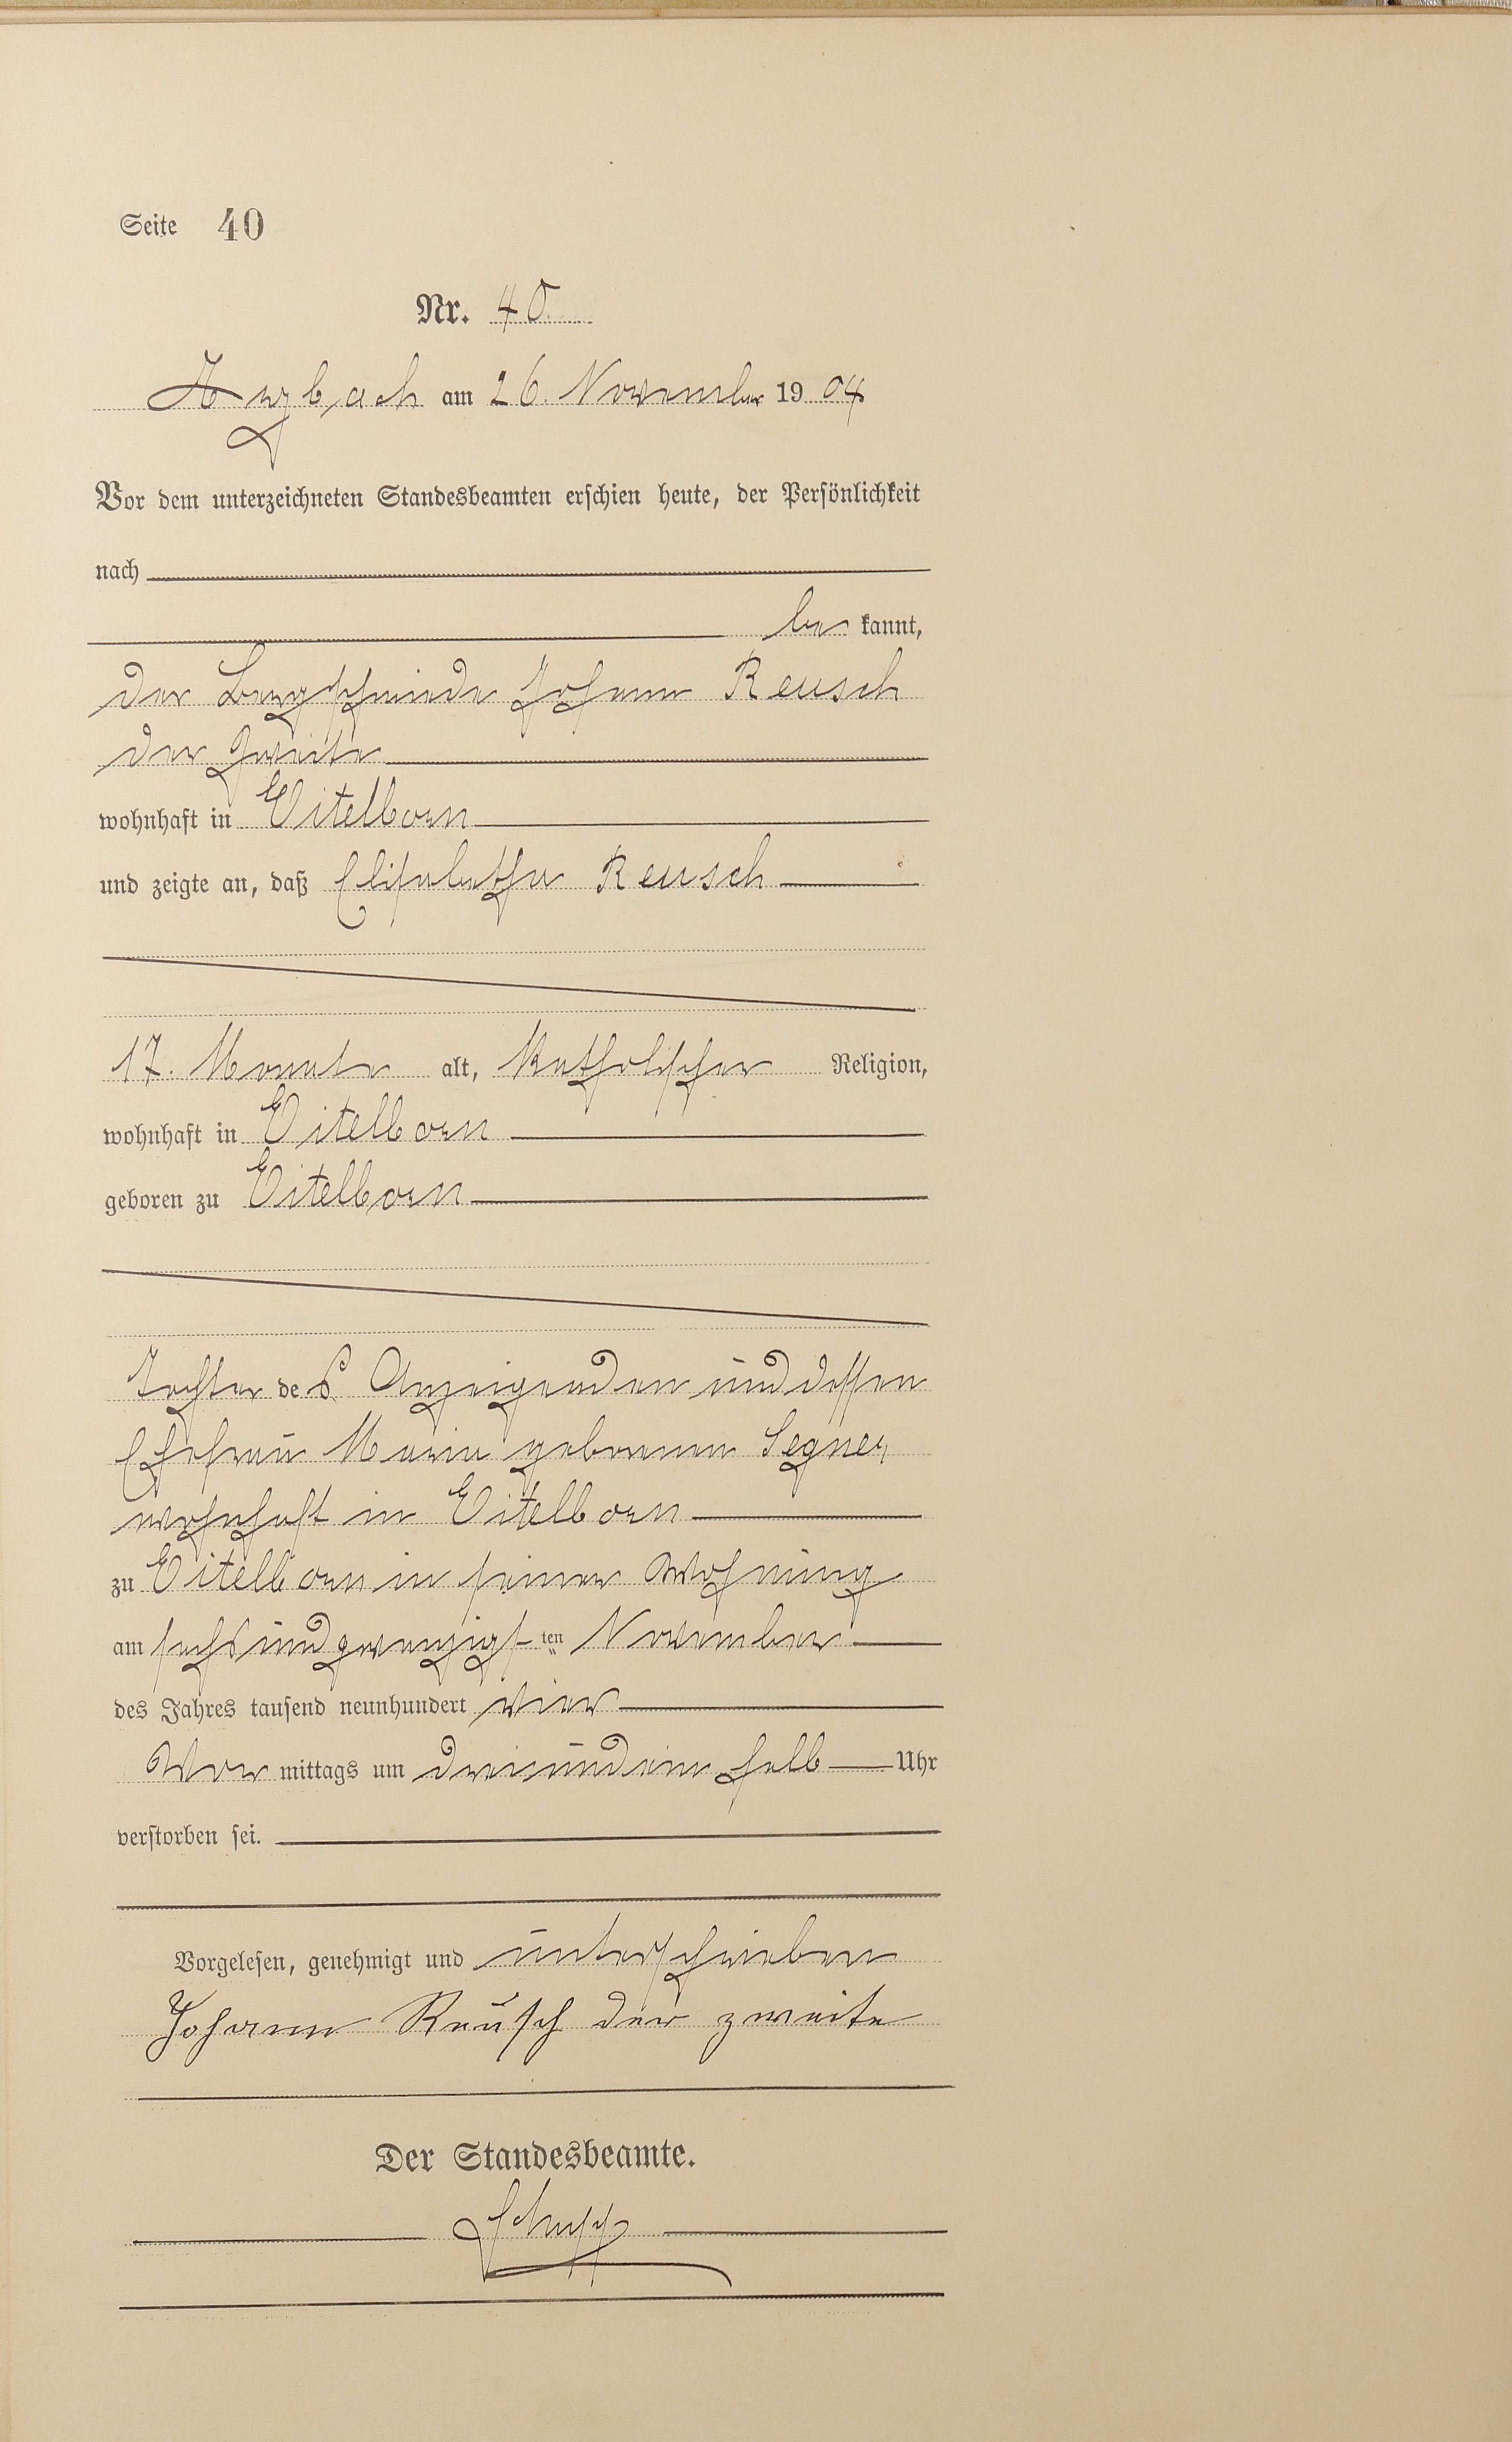 Seite 40
Nr. 40.
Arzbach am 26. November 1904
Vor dem unterzeichneten Standesbeamten erschien heute, der Persönlichkeit
nach
be kannt,
der Bergschmiede Johann Reusch
der Zweite
wohnhaft in Eitelborn
und zeigte an, daß Elisabetha Reusch
17. Monate alt, katholischer Religion,
wohnhaft in Eitelborn
geboren zu Eitelborn
Tochter des Anzeigenden und dessen
Ehefrau Maria geborenen Segner
wohnhaft in Eitelborn
zu Eitelborn in seiner Wohnung
am sechsundzwanzigsten November
des Jahres tausend neunhundert vier
Vor mittags um dreiundein halb Uhr
verstorben sei.
Vorgelesen, genehmigt und unterschrieben
Johann Reusch der zweite
Der Standesbeamte.